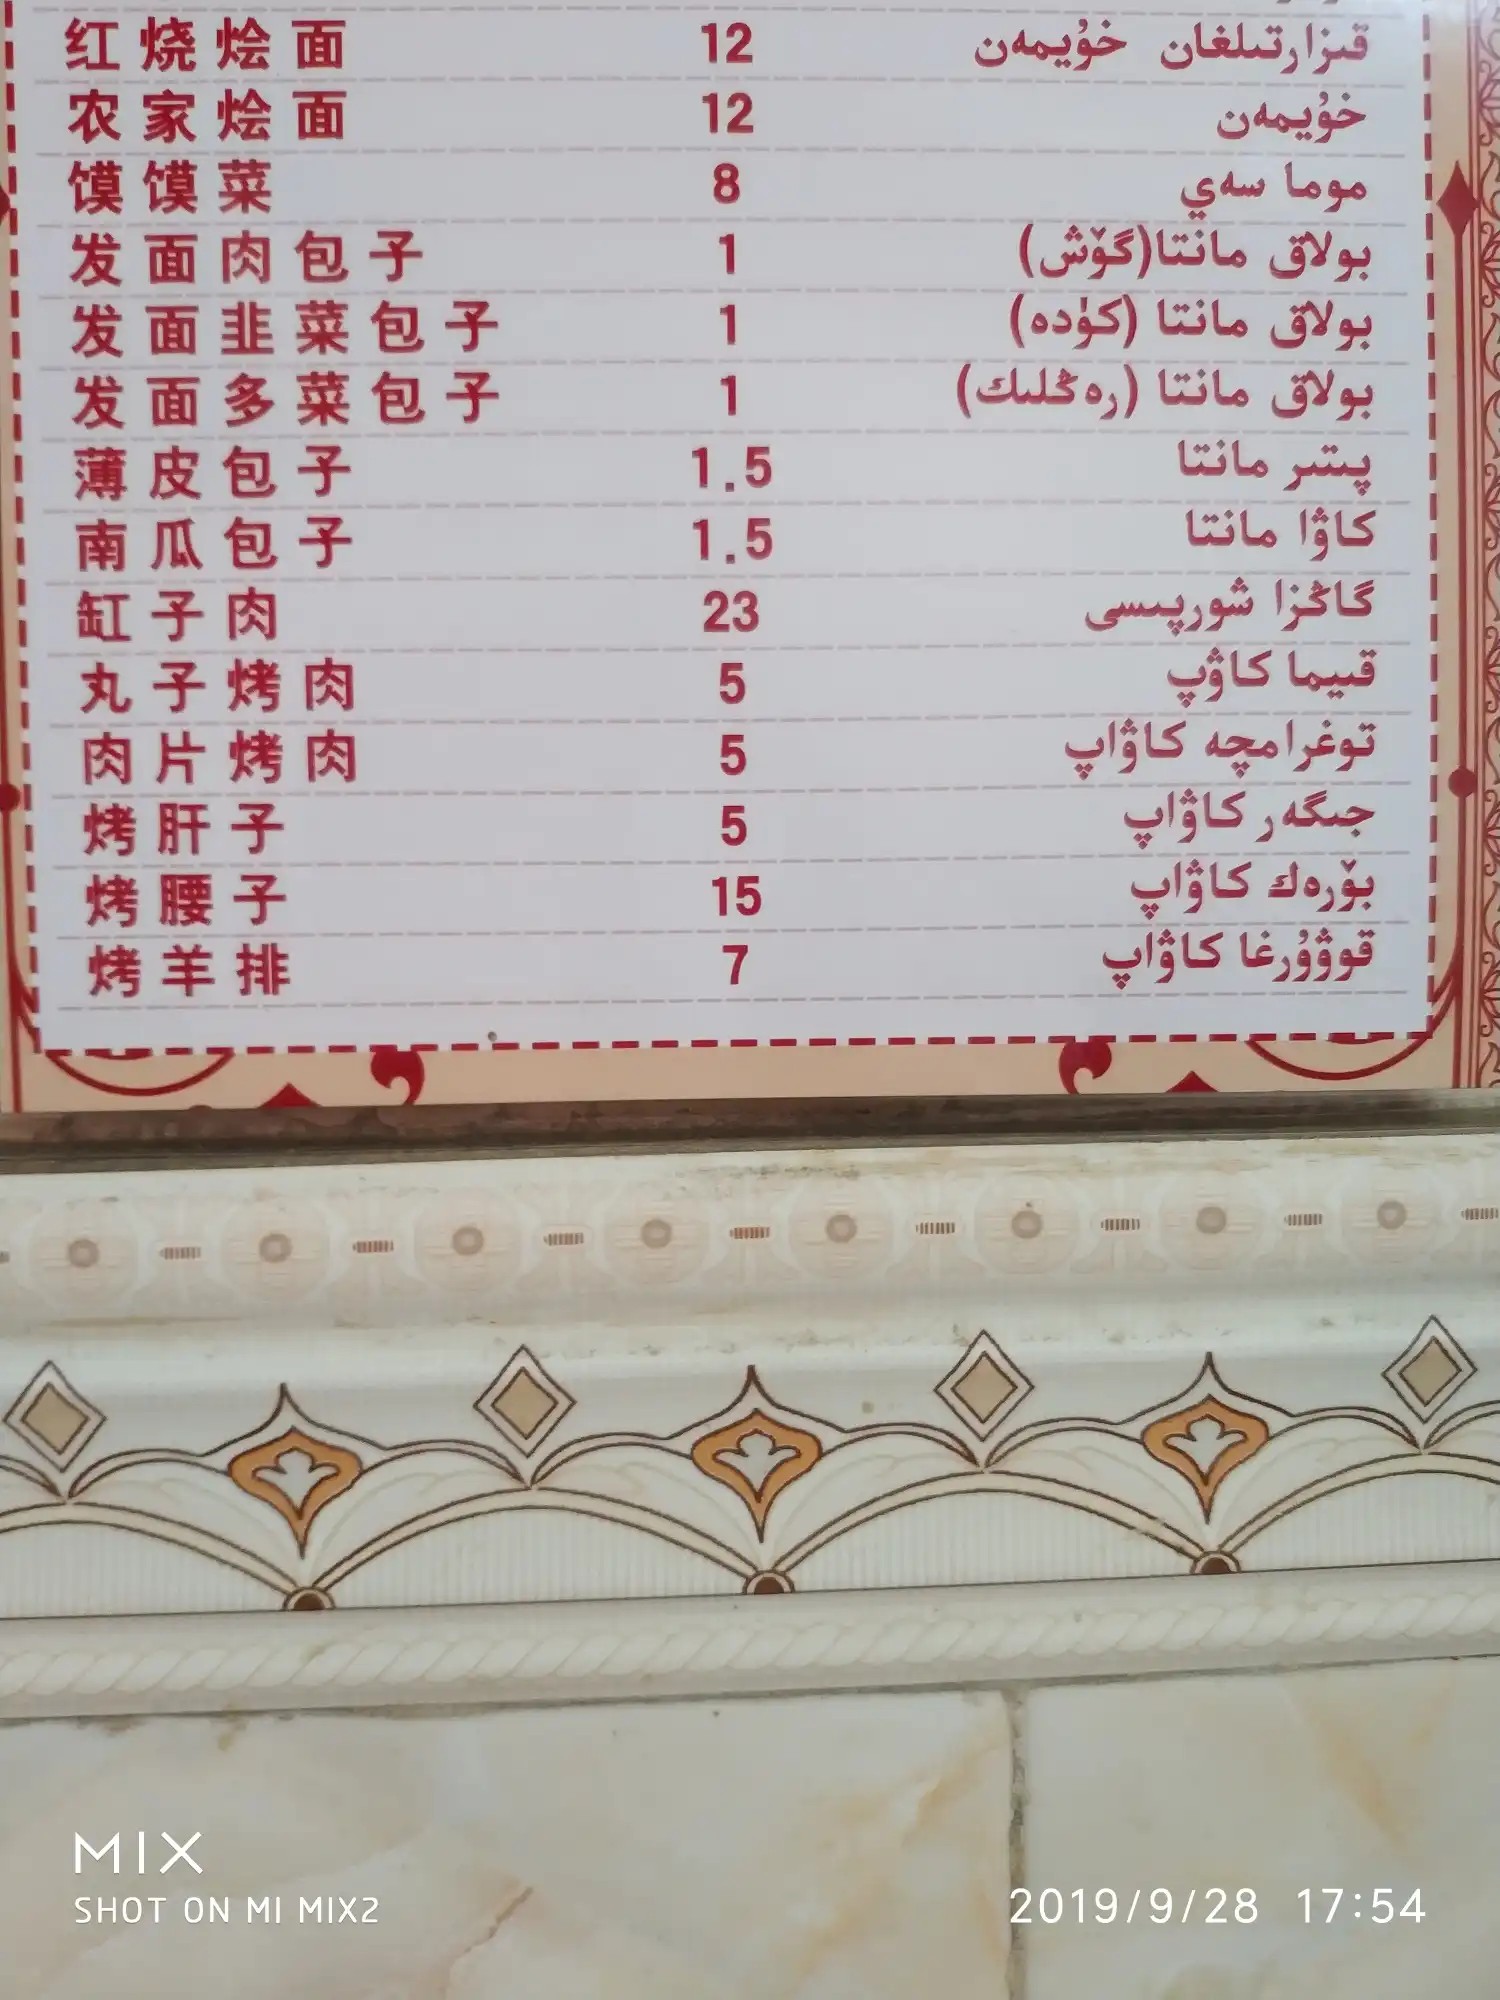 红烧烩面 12 قىزارتىلغان خۇيمەن
农家烩面 12 خۇيمەن
馍馍菜 8 موما سەي
发面肉包子 1 بولاق مانتا(گۆش)
发面韭菜包子 1 بولاق مانتا (كۈدە)
发面多菜包子 1 بولاق مانتا (رەڭلىك)
薄皮包子 1.5 پىتىر مانتا
南瓜包子 1.5 كاۋا مانتا
缸子肉 23 گاڭزا شورپىسى
丸子烤肉 5 قىيما كاۋپ
肉片烤肉 5 توغرامچە كاۋاپ
烤肝子 5 جىگەر كاۋاپ
烤腰子 15 بۆرەك كاۋاپ
烤羊排 7 قوۋۇرغا كاۋاپ
MIX
SHOT ON MI MIX2
2019/9/28 17:54